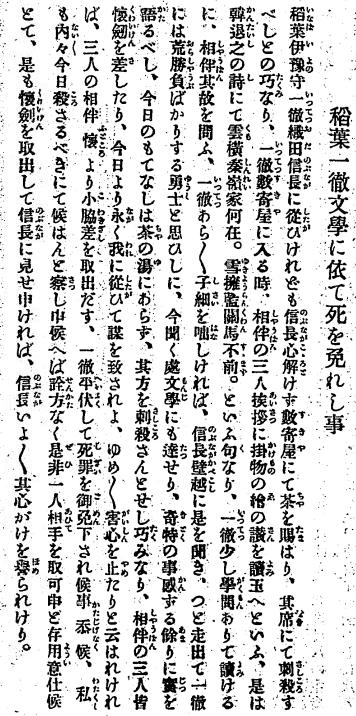 稻葉一徹文學に依て死を免れし事
稻葉伊豫守一徹織田信長に從ひけれども信長心解けず數寄屋にて茶を賜はり、其席にて刺殺す
べしとの巧なり、一徹數寄屋に入る時、相伴の三人挨拶に掛物の繪の讃を讀玉へといふ、是は
韓退之の詩にて雲橫秦嶺家何在。雪擁藍關馬不前。といふ句なり、一徹少し學問ありて讀ける
に、相伴其故を問ふ、一徹あら〳〵子細を咄しければ、信長壁越に是を聞き、つと走出て一徹
には荒勝負ばかりする勇士と思ひしに、今聞く處文學にも達せり、奇特の事感する餘りに實を
語るべし、今日のもてなしは茶の湯にあらず、其方を刺殺さんとせし巧みなり、相伴の三人皆
懷劒を差したり、今日より永く我に從ひて謀を致されよ、ゆめ〳〵害心を止たりと云はれけれ
ば、三人の相伴懷より小脇差を取出だす、一徹平伏して死罪を御免下され候事忝候、私
も內々今日殺さるべきにて候はんと察し申候へば詮方なく是非一人相手を取可申と存用意仕候
とて、是も懷劒を取出して信長に見せ申ければ、信長いよ〳〵其心がけを譽られけり。